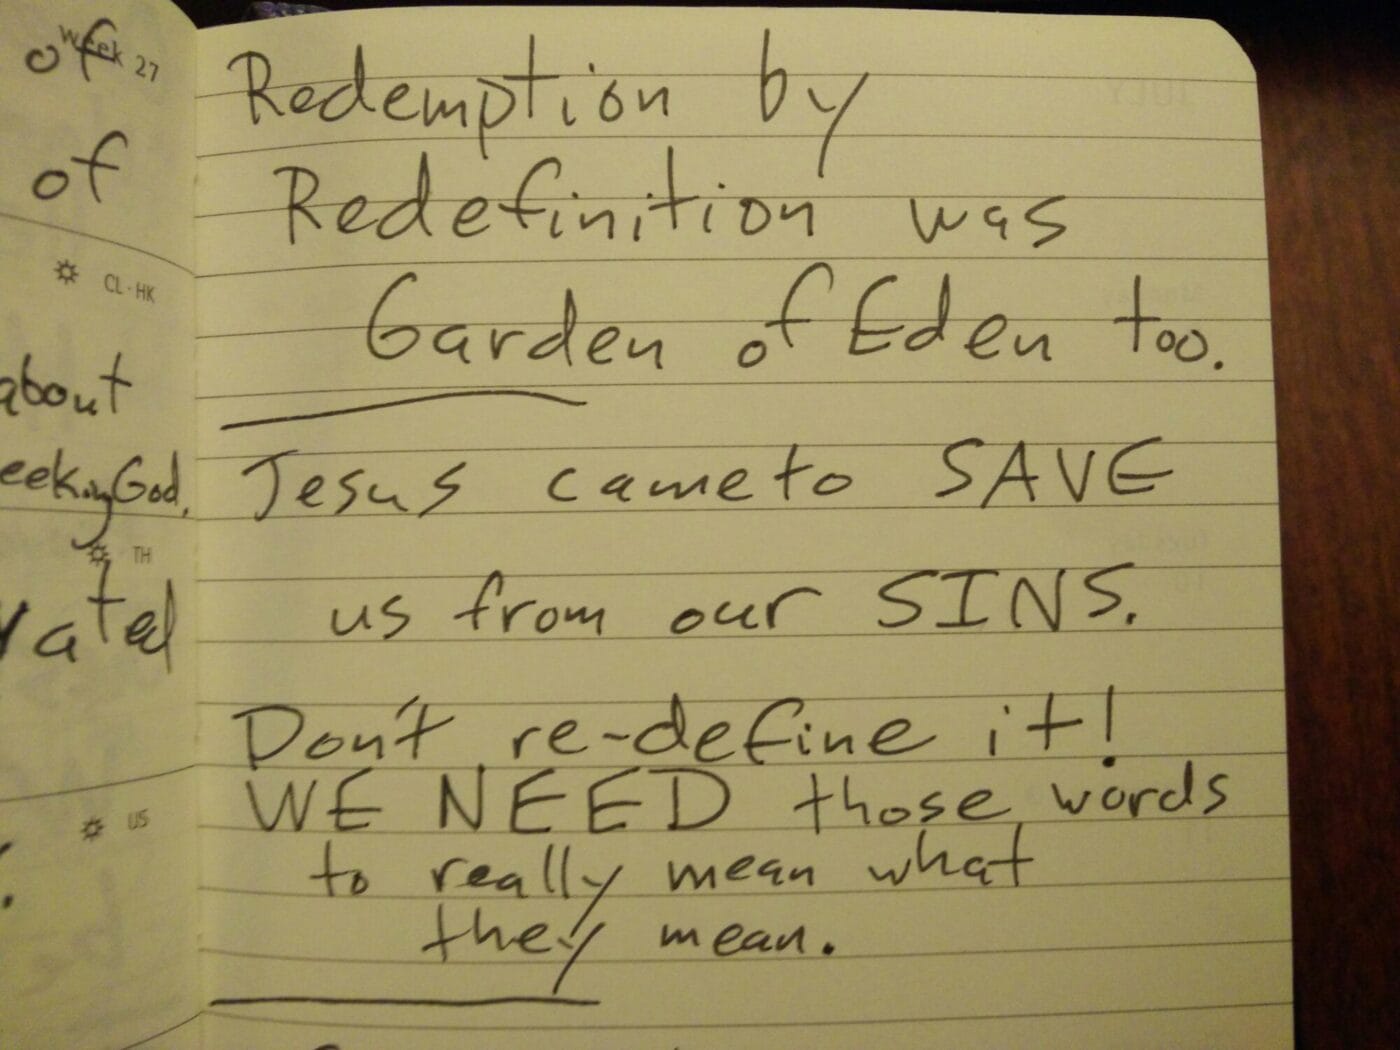 of
week 27
of
CL·HK
about
eeking God.
TH
vated
US
Redemption by
Redefinition was
Garden of Eden too.
Jesus came to SAVE
us from our SINS.
Don't re-define it!
WE NEED those words
to really mean what
they mean.